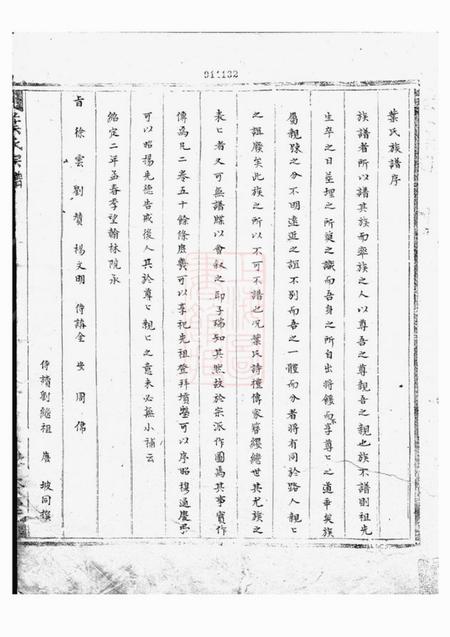 011132
葉氏族譜序
族譜者所以譜其族而率族之人以尊吾之尊親吾之親也族不譜則祖先
生卒之日塋埋之所莫之識而吾身之所自出將餒而享尊之道乖矣族
屬親踈之分不明遠近之誼不別而吾之一體而分者將有同於路人親
之誼廢矣此族之所以不可不譜也况葉氏詩禮傳家簪纓繼世其尤族之
表者又可無譜牒以會叙之耶子瑞知其然故於宗派作圖為其事實作
傳為凡二卷五十餘條庶幾可以享祀先祖登拜墳塋可以序昭穆通慶
可以昭揚先德告戒後人其於尊親之意未必無小補云
紹定二年孟春季望翰林院承
旨徐雲劉贊楊文明侍講金安周佛
侍讀劉繼祖詹坡同撰